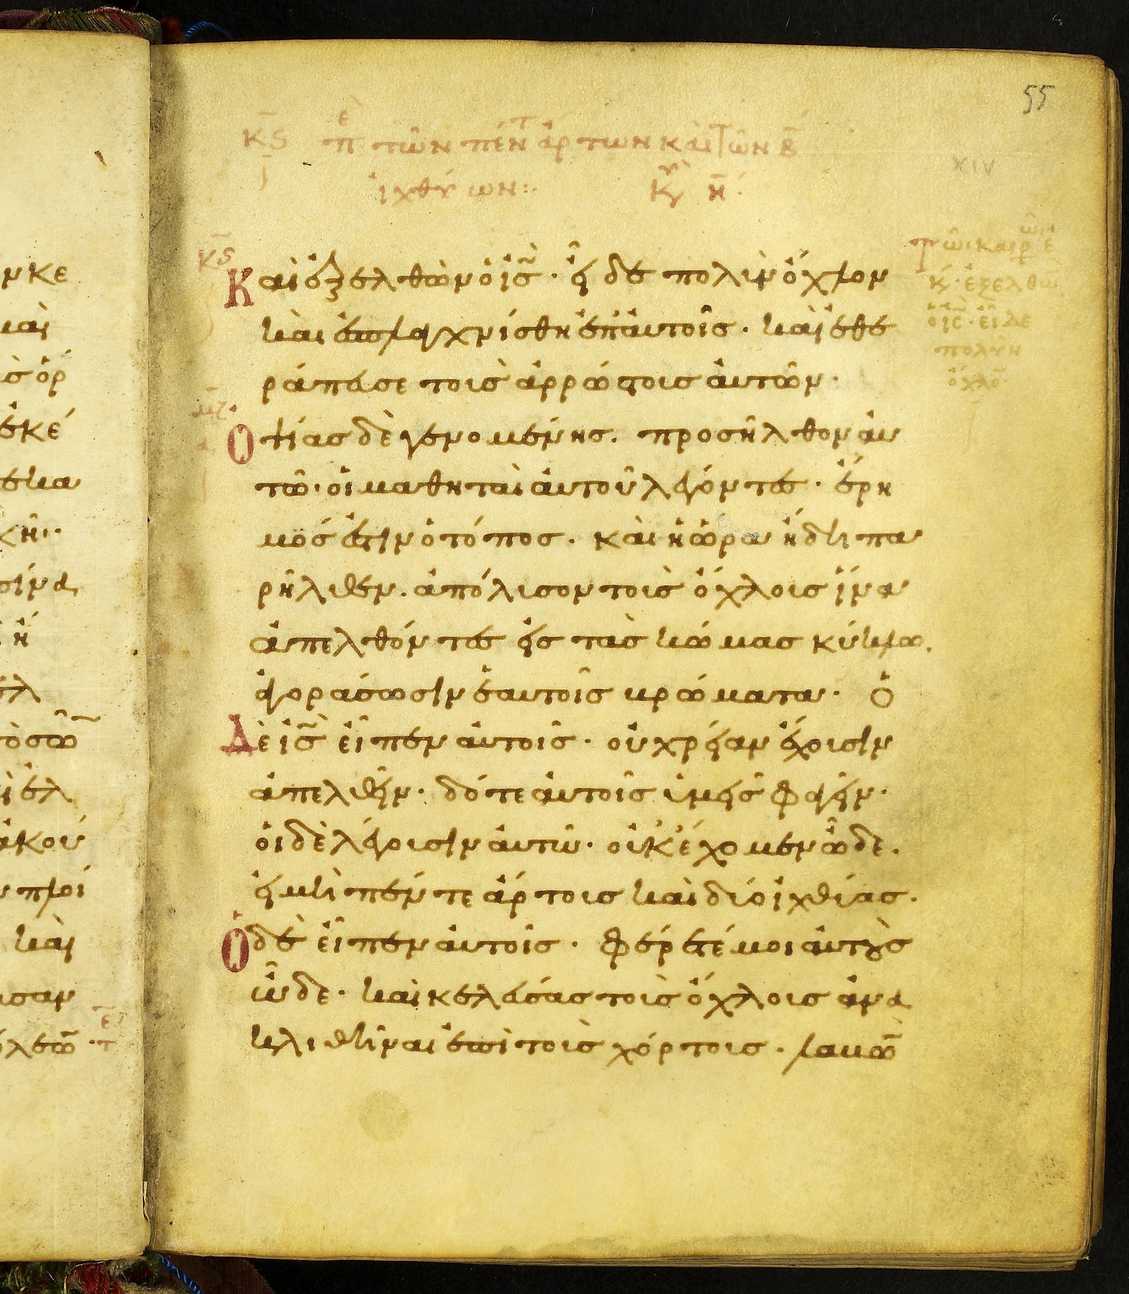 55
κς̅ π̅ε̅ τῶν πέντ ἄρτων καὶ τῶν β̅
ἰχθύων:· κ̅υ̅ η̅·
XIV
κς̅
Καὶ ἐξελθὼν ὁ ι̅ς̅· εἶδε πολὺν ὄχλον
καὶ ἐσπλαχνίσθη ἐπ αὐτοῖς· καὶ ἐθε
ράπευσε τοὺς ἀρρώστους αὐτῶν·
Ὀψίας δὲ γενομένης. προσῆλθον αὐ
τῶ· οἱ μαθηταὶ αὐτοῦ λέγοντες· ἔρη
μός ἐστιν ὁ τόπος. καὶ ἡ ὥρα ἤδη πα
ρῆλθεν. ἀπόλυσον τοὺς ὄχλους ἵνα
ἀπελθόντες εἰς τὰς κώμας κύκλω.
ἀγοράσωσιν ἑαυτοῖς βρώματα· ὁ
Δὲ ι̅ς̅ εἶπεν αὐτοῖς· οὐ χρείαν ἔχουσιν
ἀπελθεῖν· δότε αὐτοῖς ὑμεῖς φαγεῖν·
οἱ δὲ λέγουσιν αὐτῶ· οὐκ ἔχομεν ὧδε.
εἰ μὴ πέντε ἄρτους καὶ δύο ἰχθύας.
Ὁ δὲ εἶπεν αὐτοῖς· φέρετέ μοι αὐτοὺς
ὧδε· καὶ κελεύσας τοὺς ὄχλους ἀνα
κλιθῆναι ἐπὶ τοὺς χόρτους. λαβὼν
Τῶι καιρῶι ἐ
κ· ἐξελθὼ
ὁ ι̅ς̅· εἶδε
πολὺν
ὄχλο